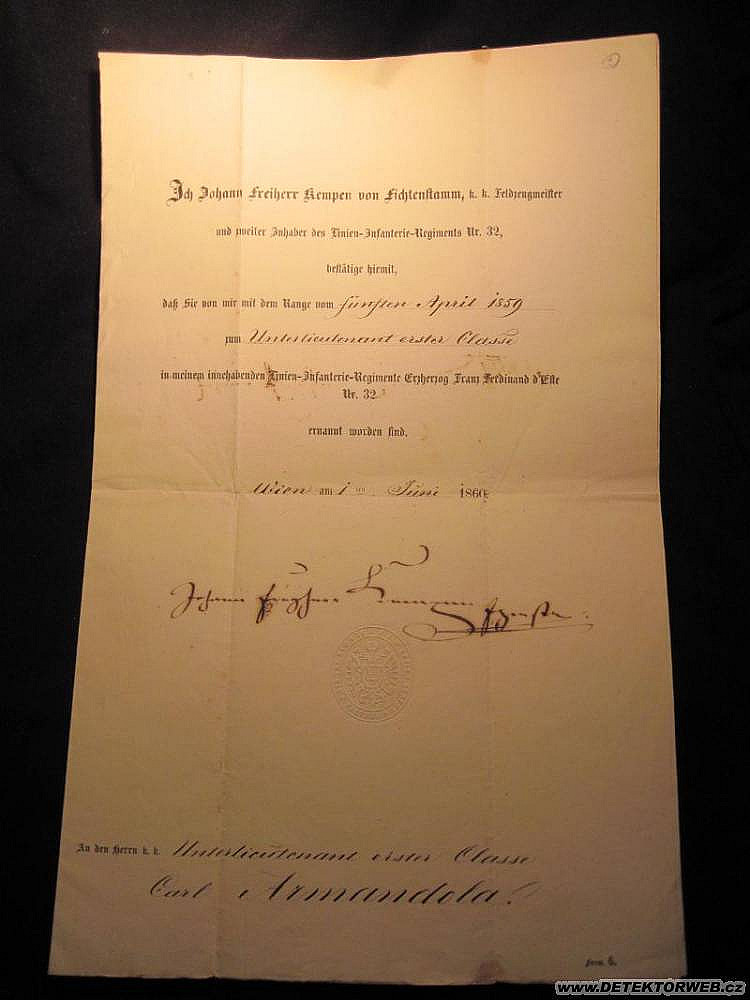 Ich Johann Freiherr Kempen von Fichtenstamm, k. k. Feldzeugmeister
und zweiter Inhaber des Linien-Infanterie-Regiments Nr. 32,
bestätige hiermit,
daß Sie von mir mit dem Range vom fünften April 1859
zum Unterlieutenant erster Classe
in meinem innehabenden Linien-Infanterie-Regimente Erzherzog Franz Ferdinand d'Este
Nr. 32
ernannt worden sind.
Wien am 1 Juni 1860
Johann Freyherr Kempen
An den Herrn k. k. Unterlieutenant erster Classe
Carl Armandola
Form. 6.
www.DETEKTORWEB.cz